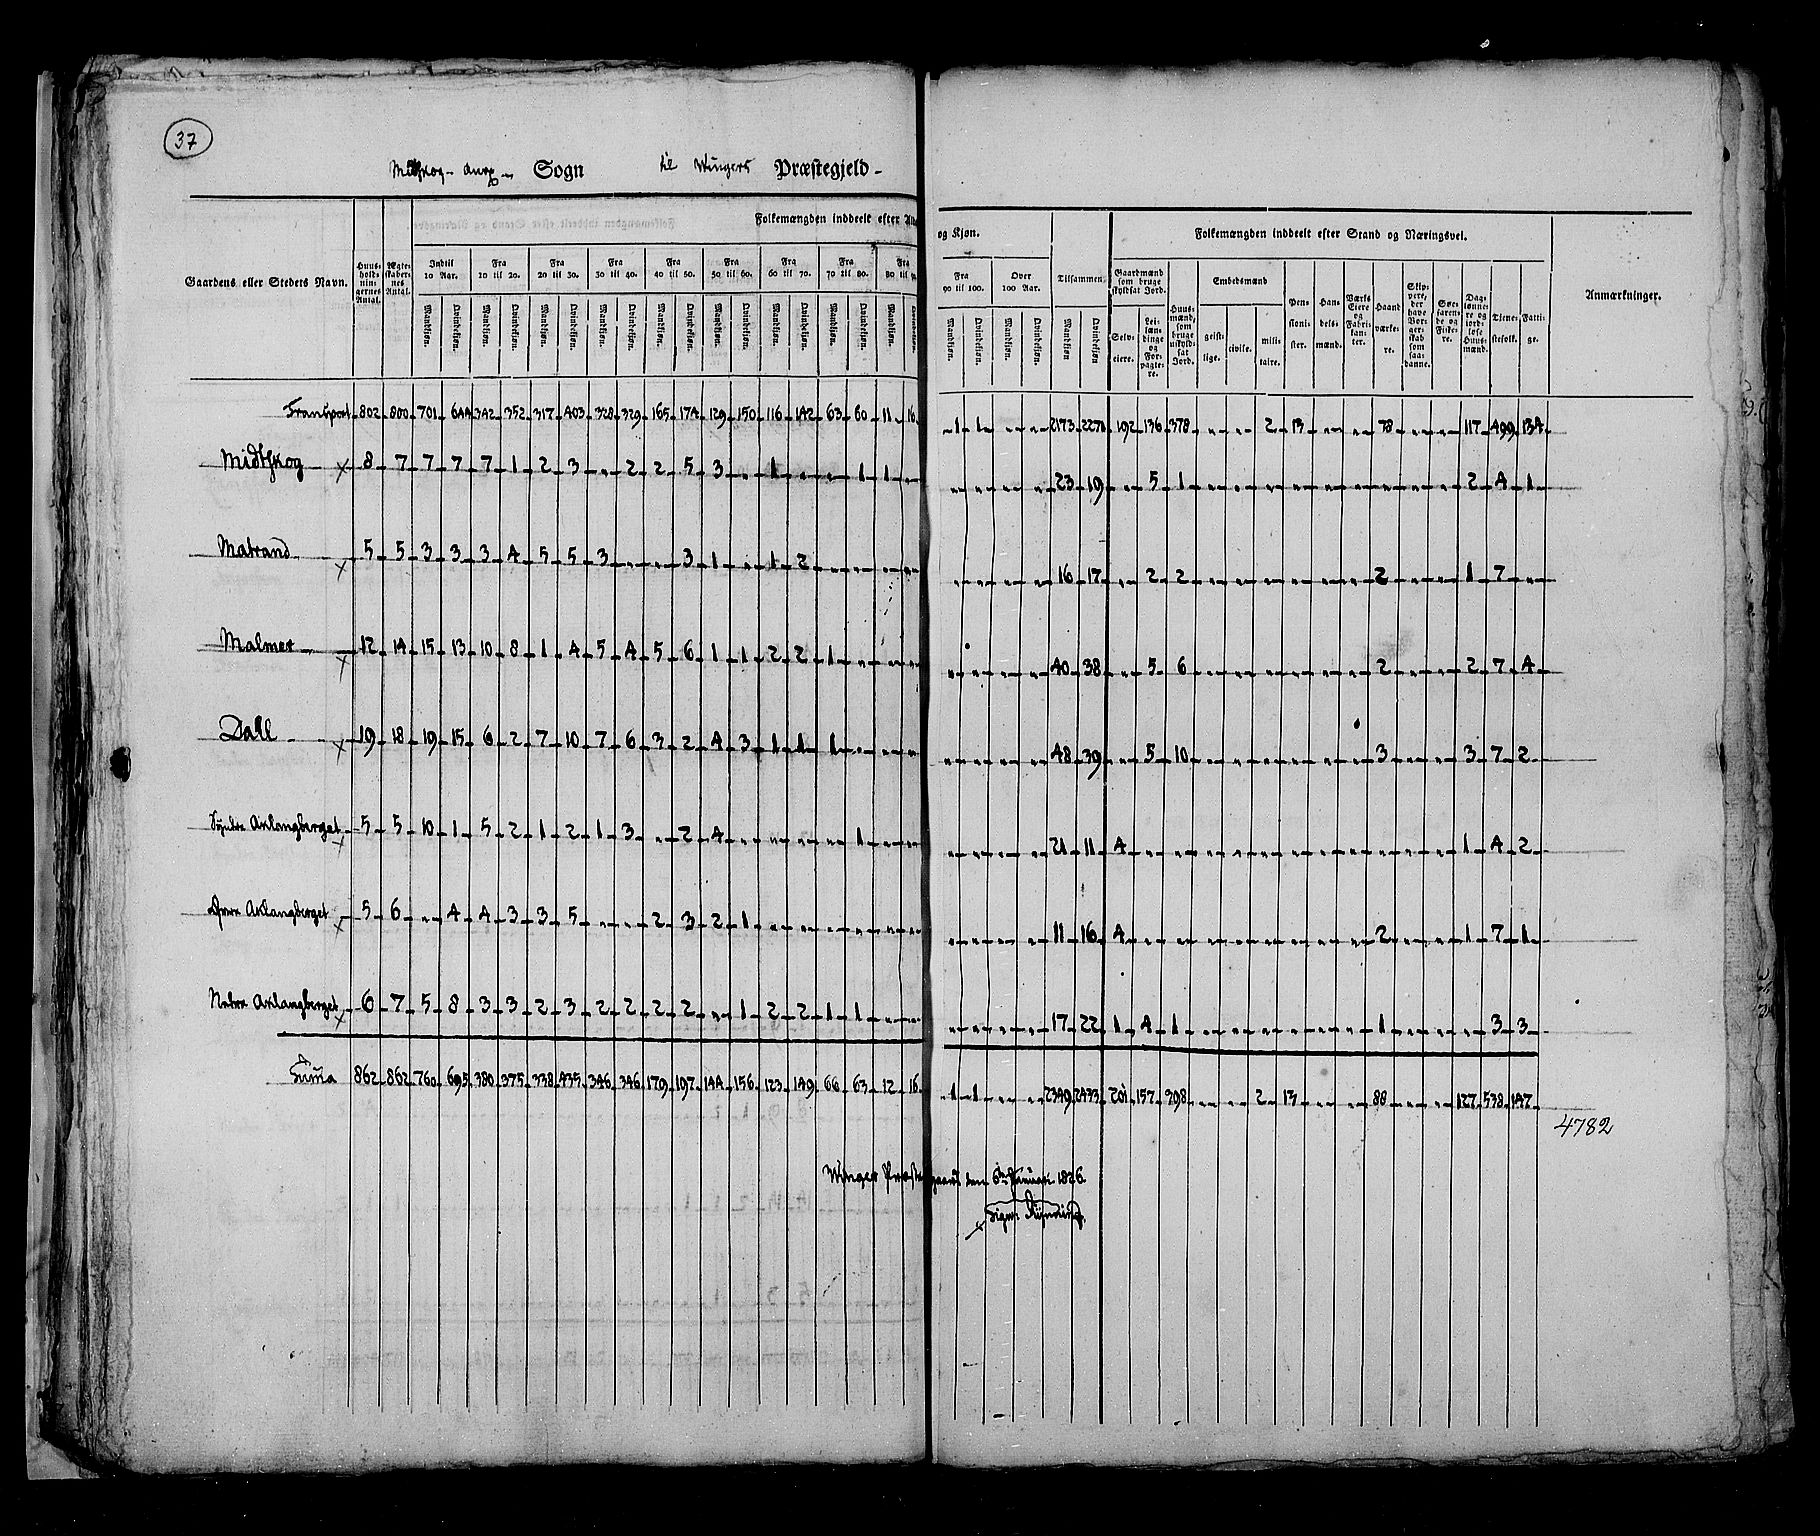 37
Sogn til Wingers Præstegjeld
Gaardens eller Stedets Navn.
Huusholdningernes Antal.
Ægteskabernes Antal.
Folkemængden inddeelt efter Al og Kjøn.
Indtil 10 Aar. Fra 10 til 20. Fra 20 til 30. Fra 30 til 40. Fra 40 til 50. Fra 50 til 60. Fra 60 til 70. Fra 70 til 80. Fra 80 til Fra 90 til 100. Over 100 Aar. Tilsammen.
Mandkjøn. Qvindekjøn. Mandkjøn. Qvindekjøn. Mandkjøn. Qvindekjøn. Mandkjøn. Qvindekjøn. Mandkjøn. Qvindekjøn. Mandkjøn. Qvindekjøn. Mandkjøn. Qvindekjøn. Mandkjøn. Qvindekjøn. Mandkjøn. Qvindekjøn. Mandkjøn. Qvindekjøn. Mandkjøn. Qvindekjøn. Mandkjøn Qvindekjøn
Folkemængden inddeelt efter Stand og Næringsvei.
Gaardmænd som bruge skyldsat Jord.
Selveiere. Leilændinge og Forpagtere.
Huusmænd, som bruge uskyldsat Jord.
Embedsmænd
geistlige. civile. militaire.
Pensionister.
Handelsmænd.
Værks Eiere og Fabrikanter.
Haandværkere.
Skippere, der have Borgerskab som saadanne.
Søefarende og Fiskere.
Daglønnere og jordløse Huusmænd.
Tjenestefolk.
Fattige.
Anmærkninger.
Transport 802 800 701 644 342 352 317 403 328 329 165 174 129 150 116 142 63 60 11 16 1 1 " " 2173 2271 192 136 378 " " 2 13 " " 78 " " 117 499 134
Midtskog x 8 7 7 7 7 1 2 3 " 2 2 5 3 " 1 " " 1 1 " " " " " 23 19 " 5 1 " " " " " " " " " 2 4 1
Matrand x 5 5 3 3 3 4 5 5 3 " " 3 1 " 1 2 " " " " " " " " 16 17 " 2 2 " " " " " " 2 " " 1 7 "
Malmer x 12 14 15 13 10 8 1 4 5 4 5 6 1 1 2 2 1 " " " " " " " 40 38 " 5 6 " " " " " " 2 " " 2 7 4
Dall x 19 18 19 15 6 2 7 10 7 6 3 2 4 3 1 1 1 " " " " " " " 48 39 " 5 10 " " " " " " 3 " " 3 7 2
Aklangberget x 5 5 10 1 5 2 1 2 1 3 " 2 4 " " " " 1 " " " " " " 21 11 4 " " " " " " " " " " " 1 4 2
Aklangberget x 5 6 " 4 4 3 3 5 " " 2 3 2 1 " " " " " " " " " " 11 16 4 " " " " " " " " 2 " " 1 7 1
Aklangberget x 6 7 5 8 3 3 2 3 2 2 2 2 " 1 2 2 1 1 " " " " " " 17 22 1 4 1 " " " " " " 1 " " " 3 3
Suma 862 862 760 695 380 375 338 435 346 346 179 197 144 156 123 149 66 63 12 16 1 1 " " 2349 2433 201 157 398 " " 2 13 " " 88 " " 127 538 147
4782
Winger Præstegaard den 6te Januar 1826.